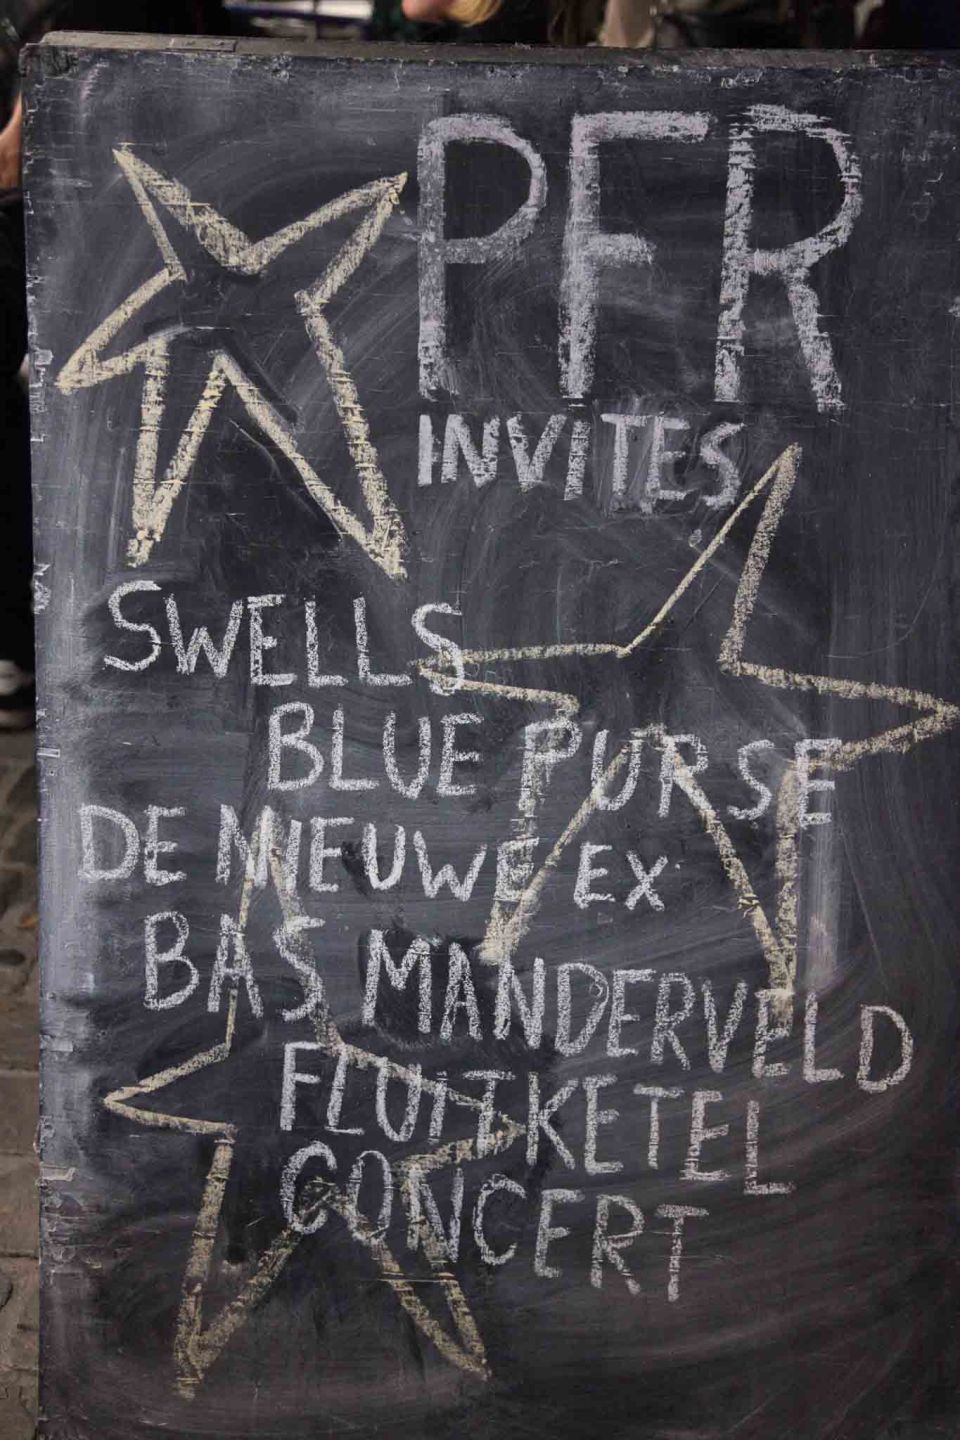 PFR
INVITES
SWELLS
BLUE PURSE
DE NIEUWE EX
BAS MANDERVELD
FLUITKETEL
CONCERT